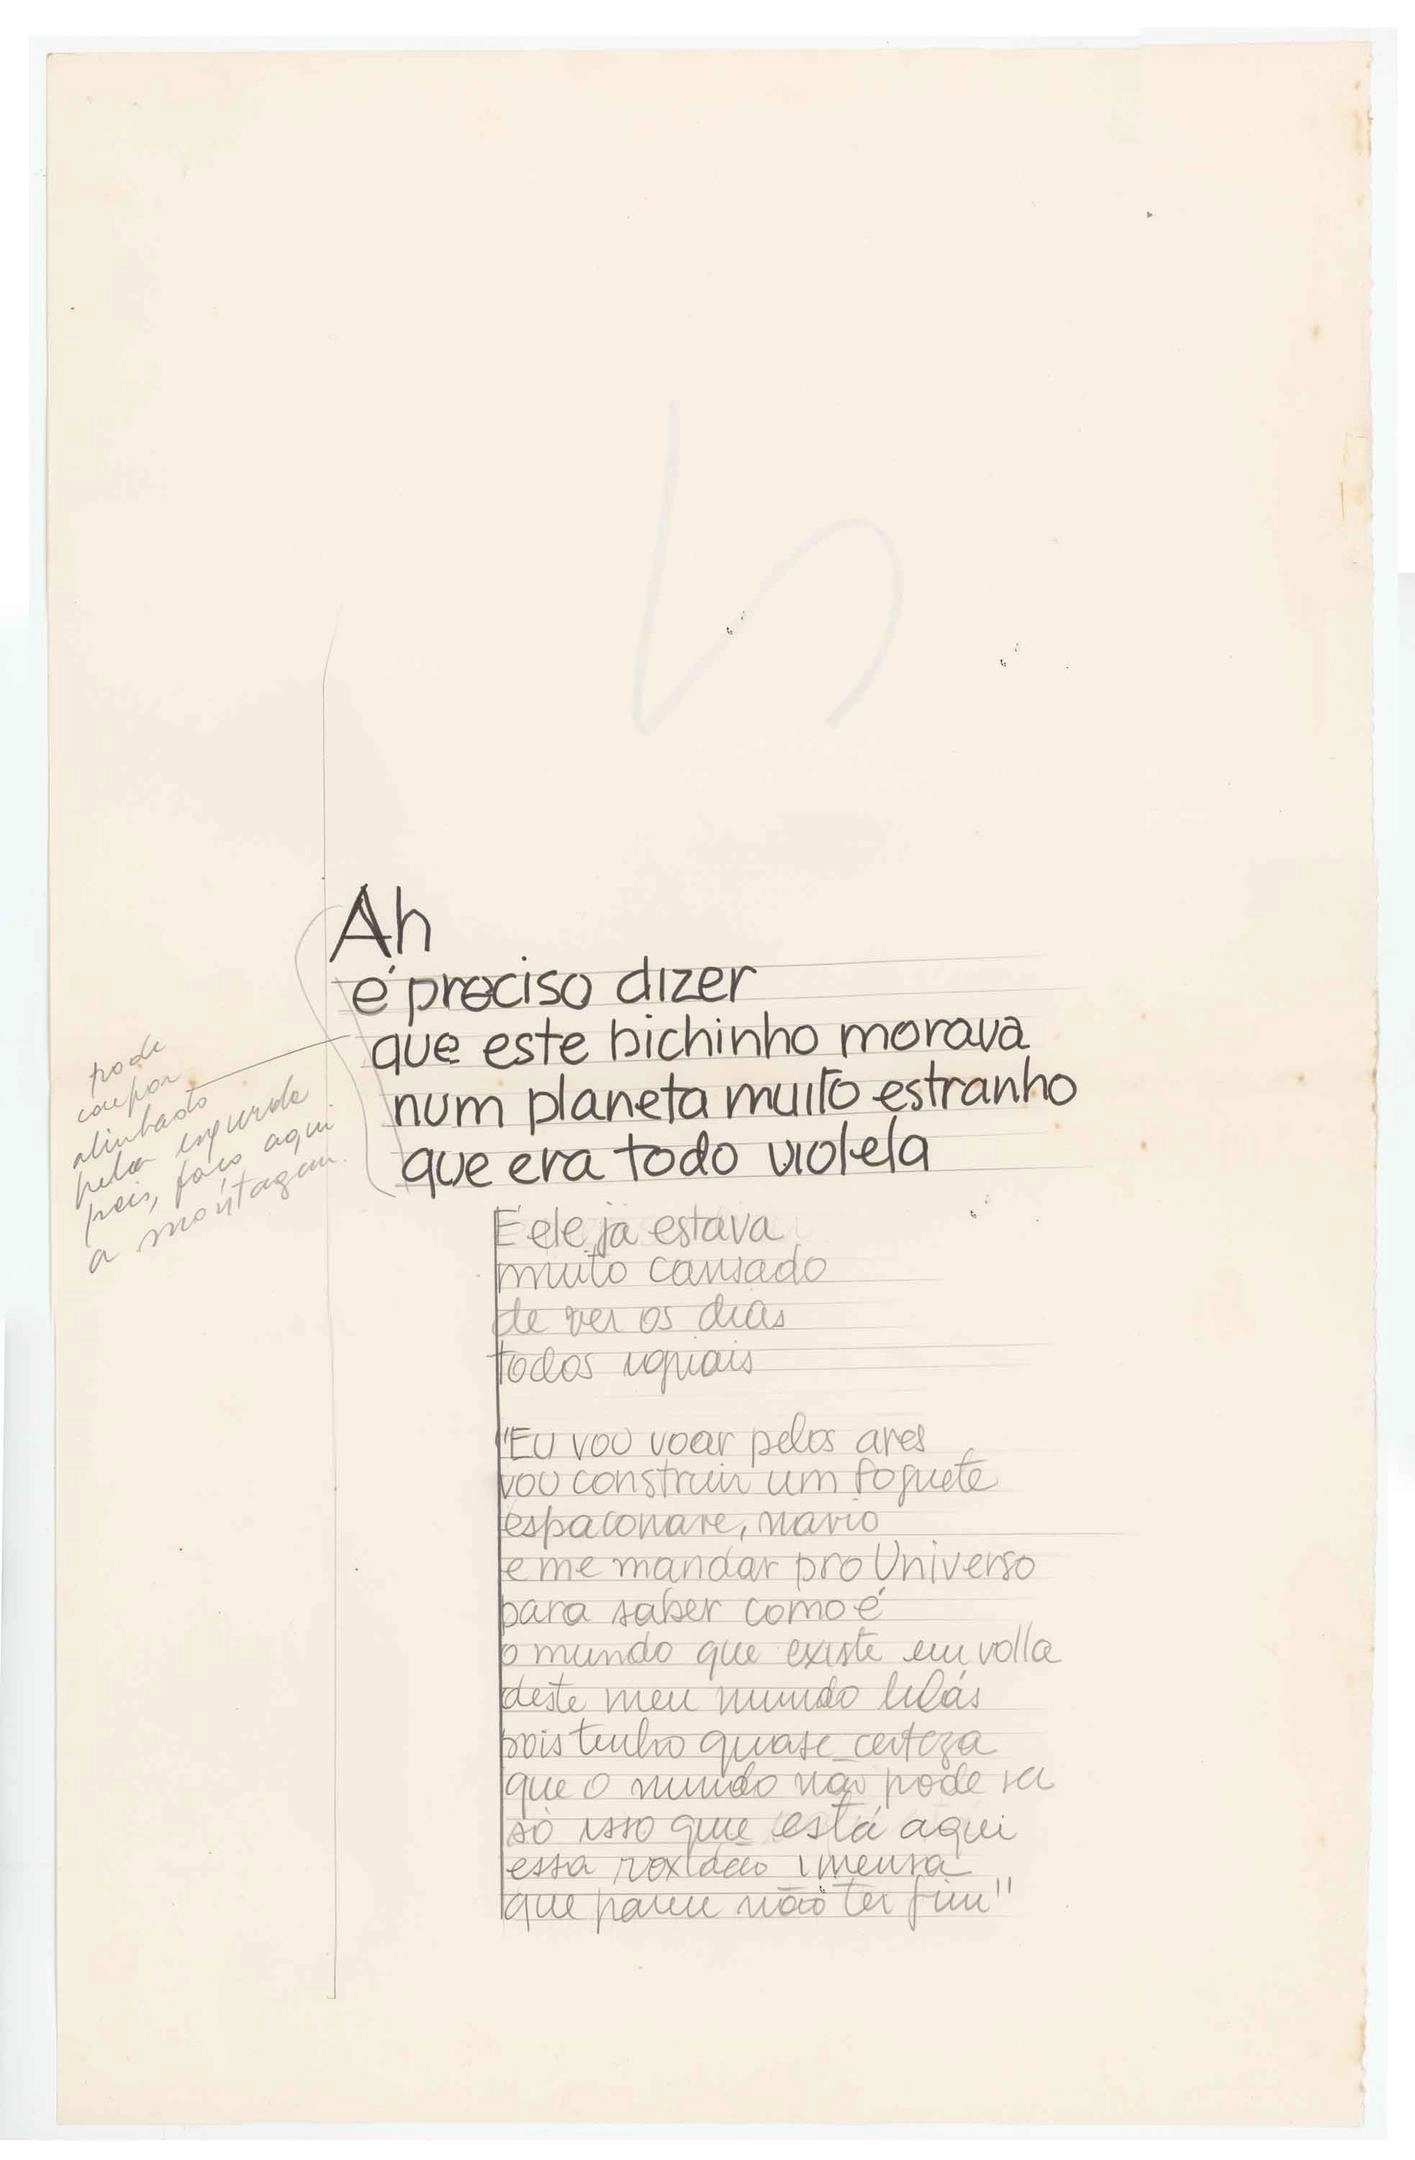 Ah
é preciso dizer
que este bichinho morava
num planeta muito estranho
que era todo violeta
pode
compor
alinhado
pela esquerda
pois, faço aqui
a montagem.
E ele já estava
muito cansado
de ver os dias
todos iguais
"Eu vou voar pelos ares
vou construir um foguete
espaconave, navio
e me mandar pro Universo
para saber como é
o mundo que existe em volta
deste meu mundo lilás
pois tenho quase certeza
que o mundo não pode ser
só isso que está aqui
essa roxidão imensa
que parece não ter fim"